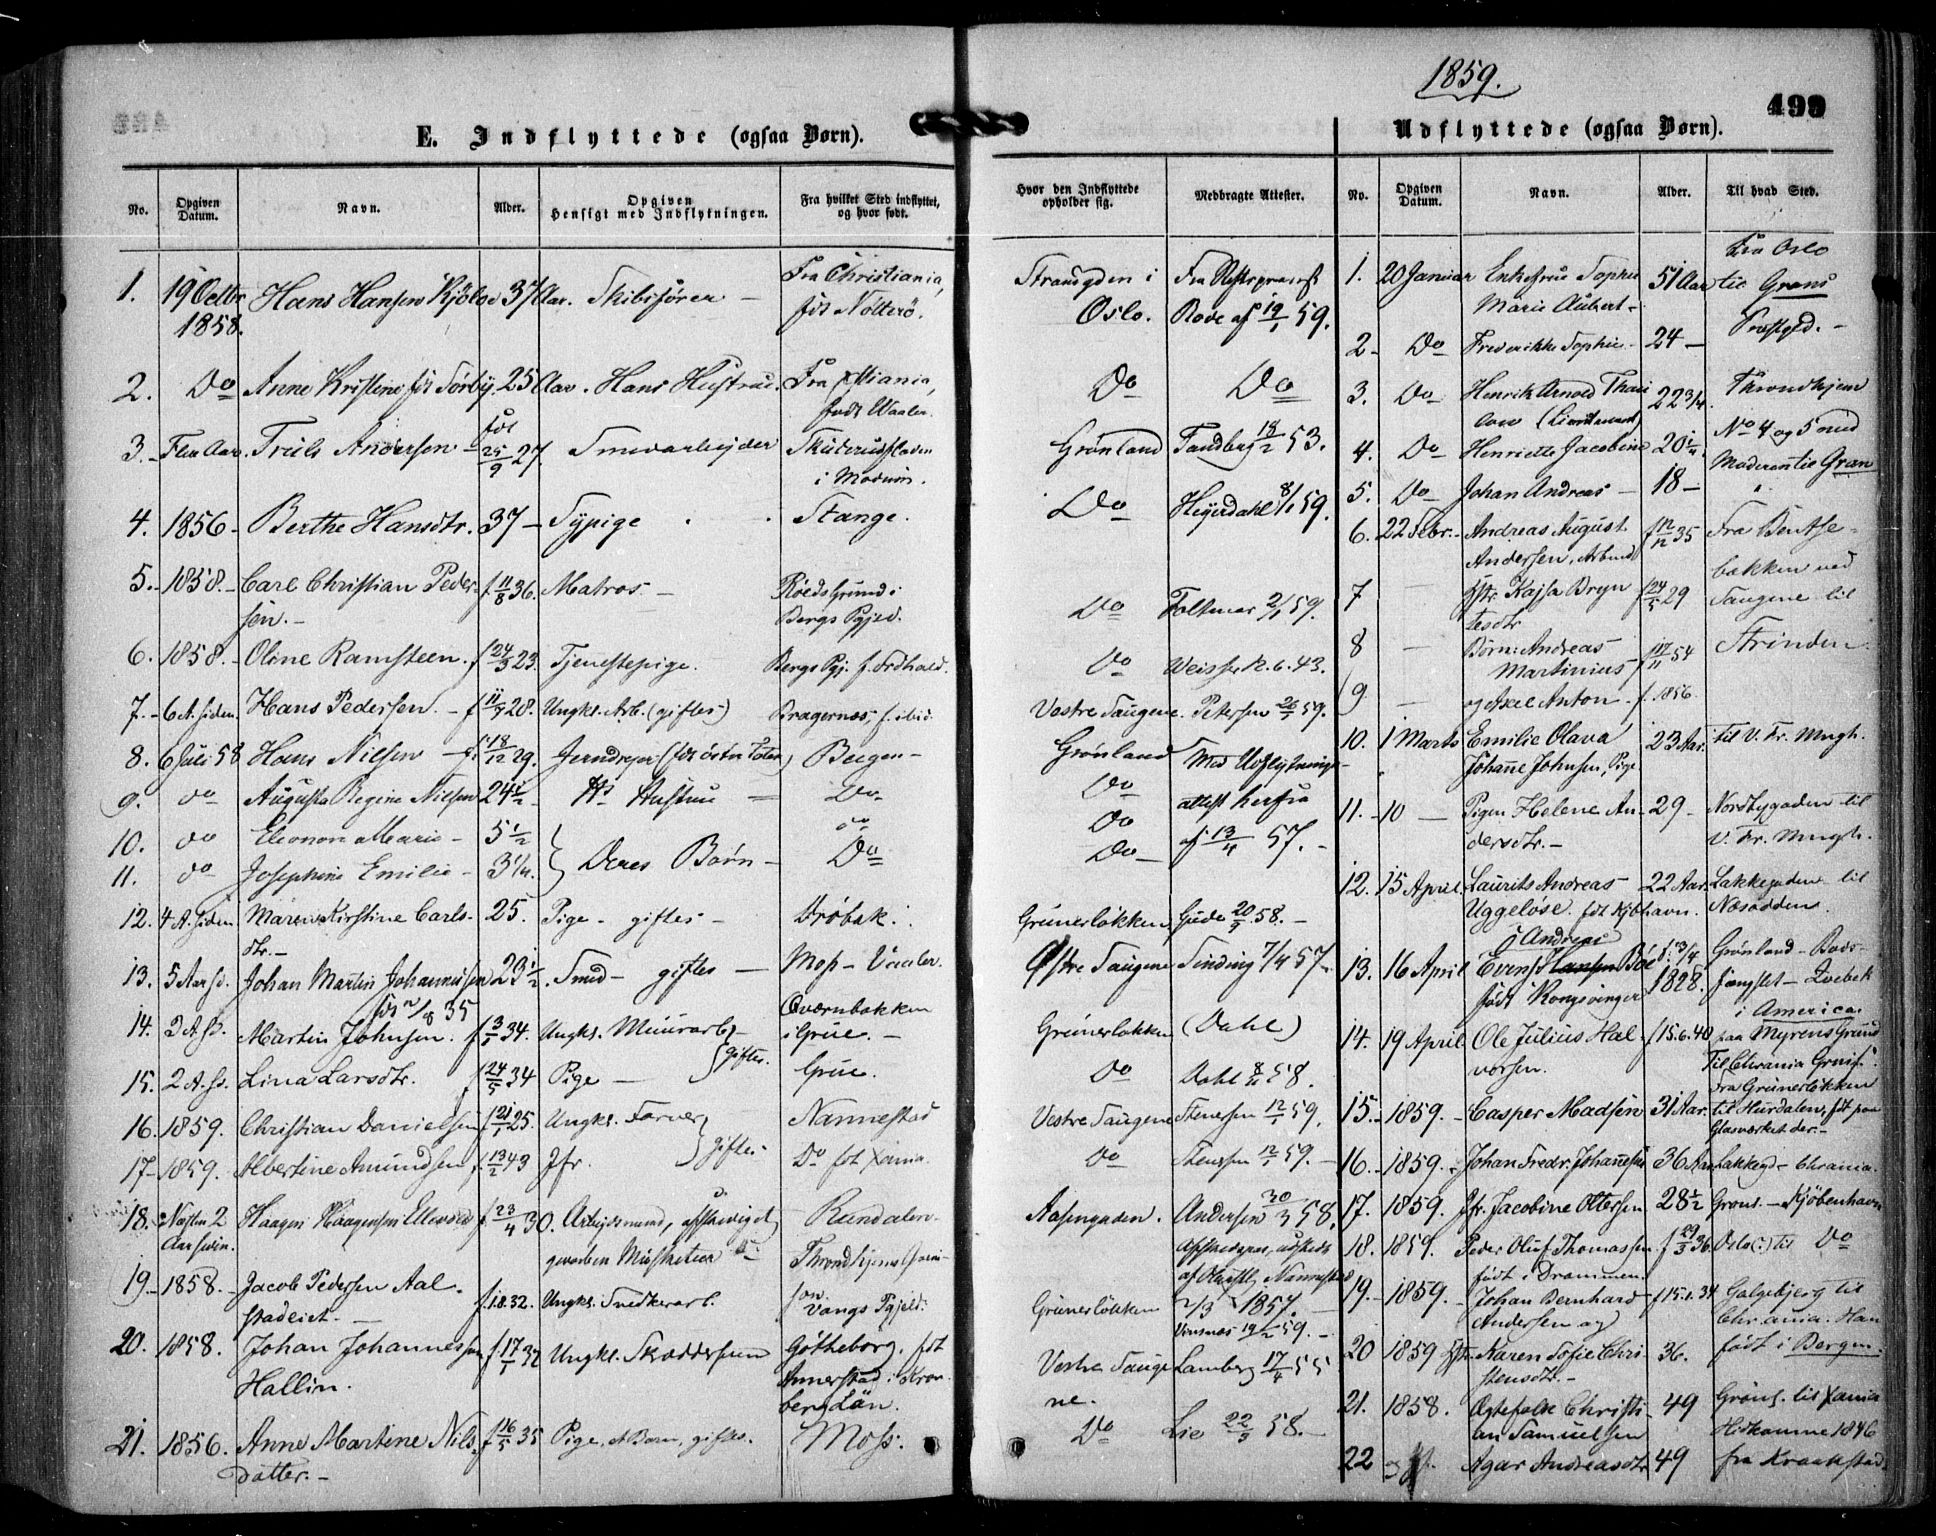 1859.
499
E. Indflyttede (ogsaa Børn).
Udflyttede (ogsaa Børn).
No. Opgiven Datum. Navn. Alder. Opgiven Hensigt med Indflytningen. Fra hvilket Sted indflyttet, og hvor født. Hvor den Indflyttede opholder sig. Medbragte Attester.
1. 19 Octbr 1858. Hans Hansen Kjölso 37 Aar. Skibsfører – Fra Christiania, fdt Nøtterö. Strandgden i Oslo. Rode af 19/1 59.
2. Do Anne Kristine fdt Sørby. 25 Aar. Hans Hustrue. Fra Xtiania, født Waaler. Do Do
3. Flere Aar. Truls Andersen – fdt 25/9 27. Smedarbejder Skuterudfladen i Modum. Grønland Tandberg 18/2 53.
4. 1856 – Berthe Hansdtr. 37 – Sypige Stange. Do Heyerdahl 8/1 59.
5. 1858. – Carl Christian Pedersen. – f. 11/8 36. Matros – Röeds Grund i Bergs Pgjed. Do Foltmar 2/1 59.
6. 1858. – Oline Ramsteen. f 24/3 23. Tjenestepige. Bergs Pgj. f. Frdhald. Do Weisse 12.6.43.
7. – 6 A. siden. Hans Pedersen. – f 11/9 28. Ungk. Arb. (giftes) Bragernæs, f. ibid. Vestre Saugene. Petersen 26/1 59.
8. 6 Juli 58 Hans Nilsen – f. 18/12 29. Jerndreyer (fdt østre Toten) Bergen – Grønland Med Udflytnings-
9. do Augusta Regine Nilsen 24 1/2 – Hs Hustrue – Do. Do attest herfra
10. do Eleonore Marie – 5 1/2 do Do af 13/4 57. –
11. do Josephine Emilie – 3 1/4. Deres Børn – Do Do –
12. 4 A. siden Maren Kirstine Carlsdtr. – 25. Pige – giftes – Drøbak. Grünerløkken Gude 20/9 58. –
13. 5 Aar sd. Johan Martin Johannessen fdt 2/8 35 23 1/2. Smed – giftes – Moss – Vaaler. Østre Saugene Sinding 7/4 57.
14. 2 A. sd. Martin Johnsen. f 3/1 34. Ungk. Muurarb. – giftes. Qværnbakken i Grue. – Grünerløkken (Dahl)
15. 2 A. sd. Lina Larsdtr. f 24/5 34 Pige – Grue. Do Dahl 8/11 58.
16. 1859. Christian Danielsen f 21/1 25. Ungk. Farver giftes. Nannestad Vestre Saugene Stenersen 12/1 59.
17 – 1859. Albertine Amundsen f. 13/2 43 Jfr. Do fdt Xania. Do Stenersen 12/1 59. –
18. Næsten 2 Aar siden. Haagen Haagensen f. 23/4 30. Arbejdsmand, afskediget gevorben Musketeer Rendalen. Aasengaden. Andersen 30/3 58.
Throndhjems Garnison. af Nannestad 2/3 1857. –
19. – 1858. Jacob Pedersen Aalstadeiet. – f. 1.8.32. Ungk. Snedkerarb. Vangs Pgjeld. Grünerløkken Vinsnes 19/2 59. –
20. 1858. Johan Johannessen Hallin. f 17/1 32 Ungk. Skræddersvend Götheborg, fdt Annerstad i Kronbergs Län. Vestre Saugene. Lamberg 17/4 55
21. 1856. Anne Martine Nilsdatter. – f 16/5 35 Pige, 1 Barn, giftes. Moss. Do Lie 22/9 58. –
No. Opgiven Datum. Navn. Alder. Til hvad Sted.
1. 20 Januar Enkefrue Sophie Marie Aubert – 51 Aar Fra Oslo til Grans
2 – Do Frederikke Sophie – 24 – Præstgd. –
3. Do Henrik Arnold Thaulow (Lieutenant) 22 3/4. Throndhjem
4. Do Henriette Jacobine 20 1/4 No 4 og 5 med
5. Do Johan Andreas – 18 – Moderen til Gran
6. 22 Febr. – Andreas August Andersen, Arbmd f 12/12 35 Fra Bentsebakken ved
7 – Hstr. Kajsa Bryntesdtr f 24/5 29 Saugene til
8 – Børn: Andreas Martinius f 17/11 54 Strinden.
9. – og Axel Anton. f. 1856.
10. 1 Marts Emilie Olava Johanne Johnsen, Pige 23 Aar. Til V. Fr. Mngh.
11. – 10 – Pigen Helene Andersdtr. – 29 – Nordbygaden til V. Fr. Mngh.
12. 15 April. Laurits Andreas Uggeløse. fdt Kjøbhavn. 22 Aar. Lakkegaden til Næsodden.
13. 16 April Even Andreas Hansen født Kongsvinger f. 13/4 1828. Grønland – Qvebek i America.
14. 19 April Ole Julius Halvorsen. f 15.6.40 paa Myrens Grund Til Chrania
15. – 1859. – Casper Madsen 31 Aar. Fra Grünerløkken til Hurdalen, fdt paa Glasværket der. –
16. – 1859. – Johan Fredr. Johannesen 36 Aar Lakkegd – Chrania.
17. 1859. Jfr. Jacobine Oltersen 28 1/2 Grønl. – Kjøbenhavn
18. 1859. Peder Oluf Thomassen født i Drammen. f 29/3 36. Oslo (?) til Do
19. – 1859. – Johan Bernhard Andersen og f 15.1.34 Galgebjerg til Chrania. Han
20 1859 Hstr. Karen Sofie Christensdtr. – 36. født i Bergen.
21. 1858. Ægtefolk Christian Samuelsen 49 Grønl. til Xania
22 og Hst. Agar Andreasdtr 49 Hidkomne 1846 fra Kraakstad.